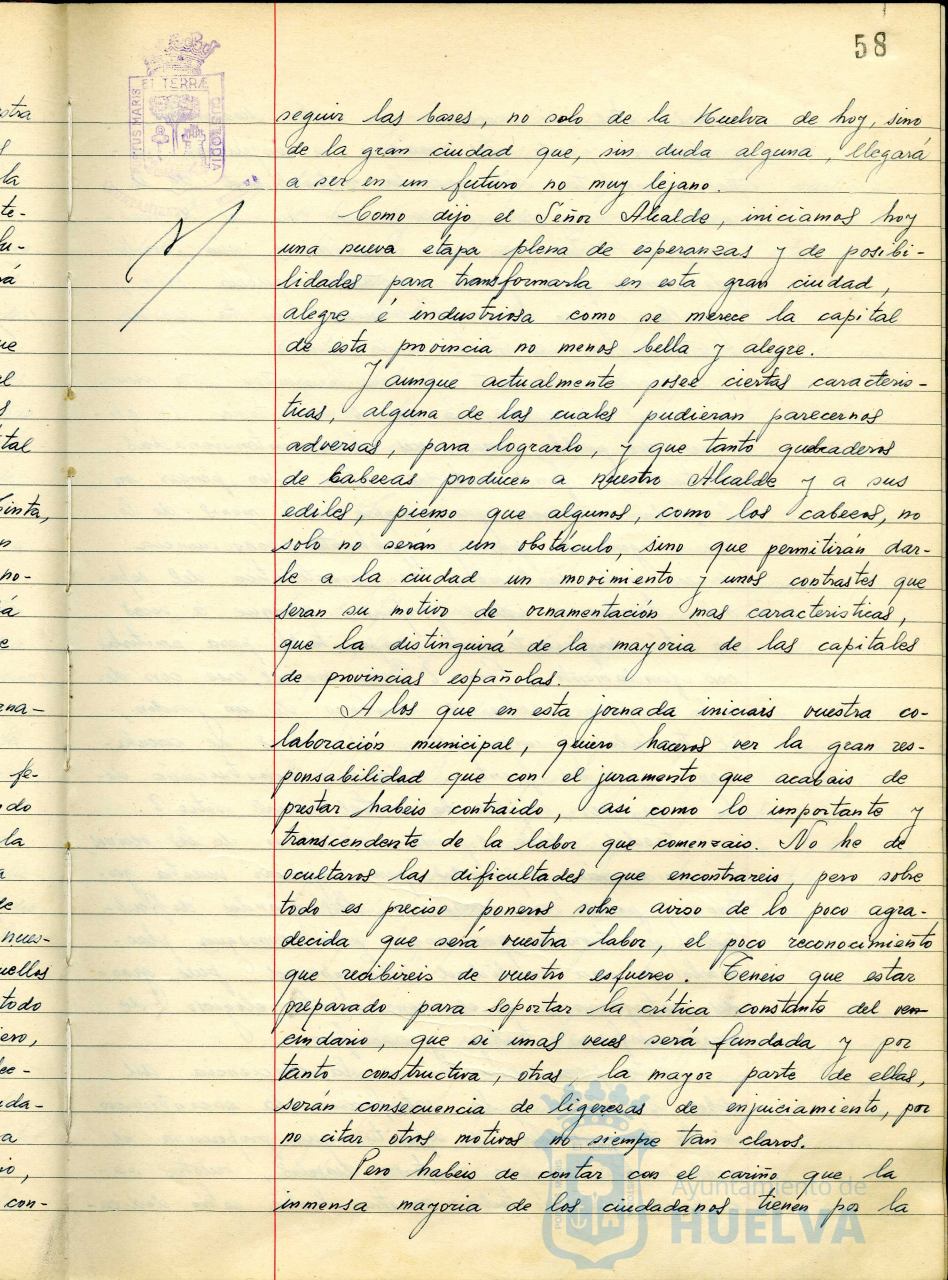 58
ET TERRÆ
CUSTODIA
TUS MARIS
seguir las bases, no solo de la Huelva de hoy, sino
de la gran ciudad que, sin duda alguna, llegará
a ser en un futuro no muy lejano.
Como dijo el Señor Alcalde, iniciamos hoy
una nueva etapa plena de esperanzas y de posibi-
lidades para transformarla en esta gran ciudad,
alegre é industriosa como se merece la capital
de esta provincia no menos bella y alegre.
Y aunque actualmente posee ciertas caracteris-
ticas, alguna de las cuales pudieran parecernos
adversas, para lograrlo, y que tanto quebraderos
de cabecas producen a nuestro Alcalde y a sus
ediles, pienso que algunos, como los cabecos, no
solo no serán un obstáculo, sino que permitirán dar-
le a la ciudad un movimiento y unos contrastes que
seran su motivo de ornamentación mas caracteristicas,
que la distinguirá de la mayoria de las capitales
de provincias españolas.
A los que en esta jornada iniciais vuestra co-
laboración municipal, quiero haceros ver la gran res-
ponsabilidad que con el juramento que acabais de
prestar habeis contraido, asi como lo importante y
transcendente de la labor que comenzais. No he de
ocultaros las dificultades que encontrareis, pero sobre
todo es preciso poneros sobre aviso de lo poco agra-
decida que será vuestra labor, el poco reconocimiento
que recibireis de vuestro esfuerzo. Teneis que estar
preparado para soportar la crítica constante del ven
cindario, que si unas veces será fundada y por
tanto constructiva, otras, la mayor parte de ellas,
serán consecuencia de ligeresas de enjuiciamiento, por
no citar otros motivos no siempre tan claros.
Pero habeis de contar con el cariño que la
inmensa mayoria de los ciudadanos tienen por la
Ayuntamiento de
HUELVA